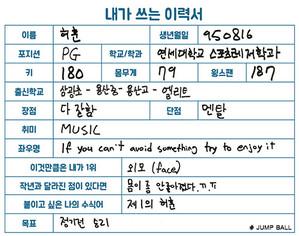 내가 쓰는 이력서
이름 허훈 생년월일 950816
포지션 PG 학교/학과 연세대학교 스포츠레저학과
키 180 몸무게 79 윙스팬 187
출신학교 삼광초 - 용산중 - 용산고 - 엘리트
장점 다 잘함 단점 멘탈
취미 MUSIC
좌우명 If you can't avoid something try to enjoy it
이것만큼은 내가 1위 외모 (face)
작년과 달라진 점이 있다면 몸이 좀 안좋아졌다.ㅠ.ㅠ
붙이고 싶은 나의 수식어 제1의 허훈
목표 정기전 승리
@ JUMP BALL